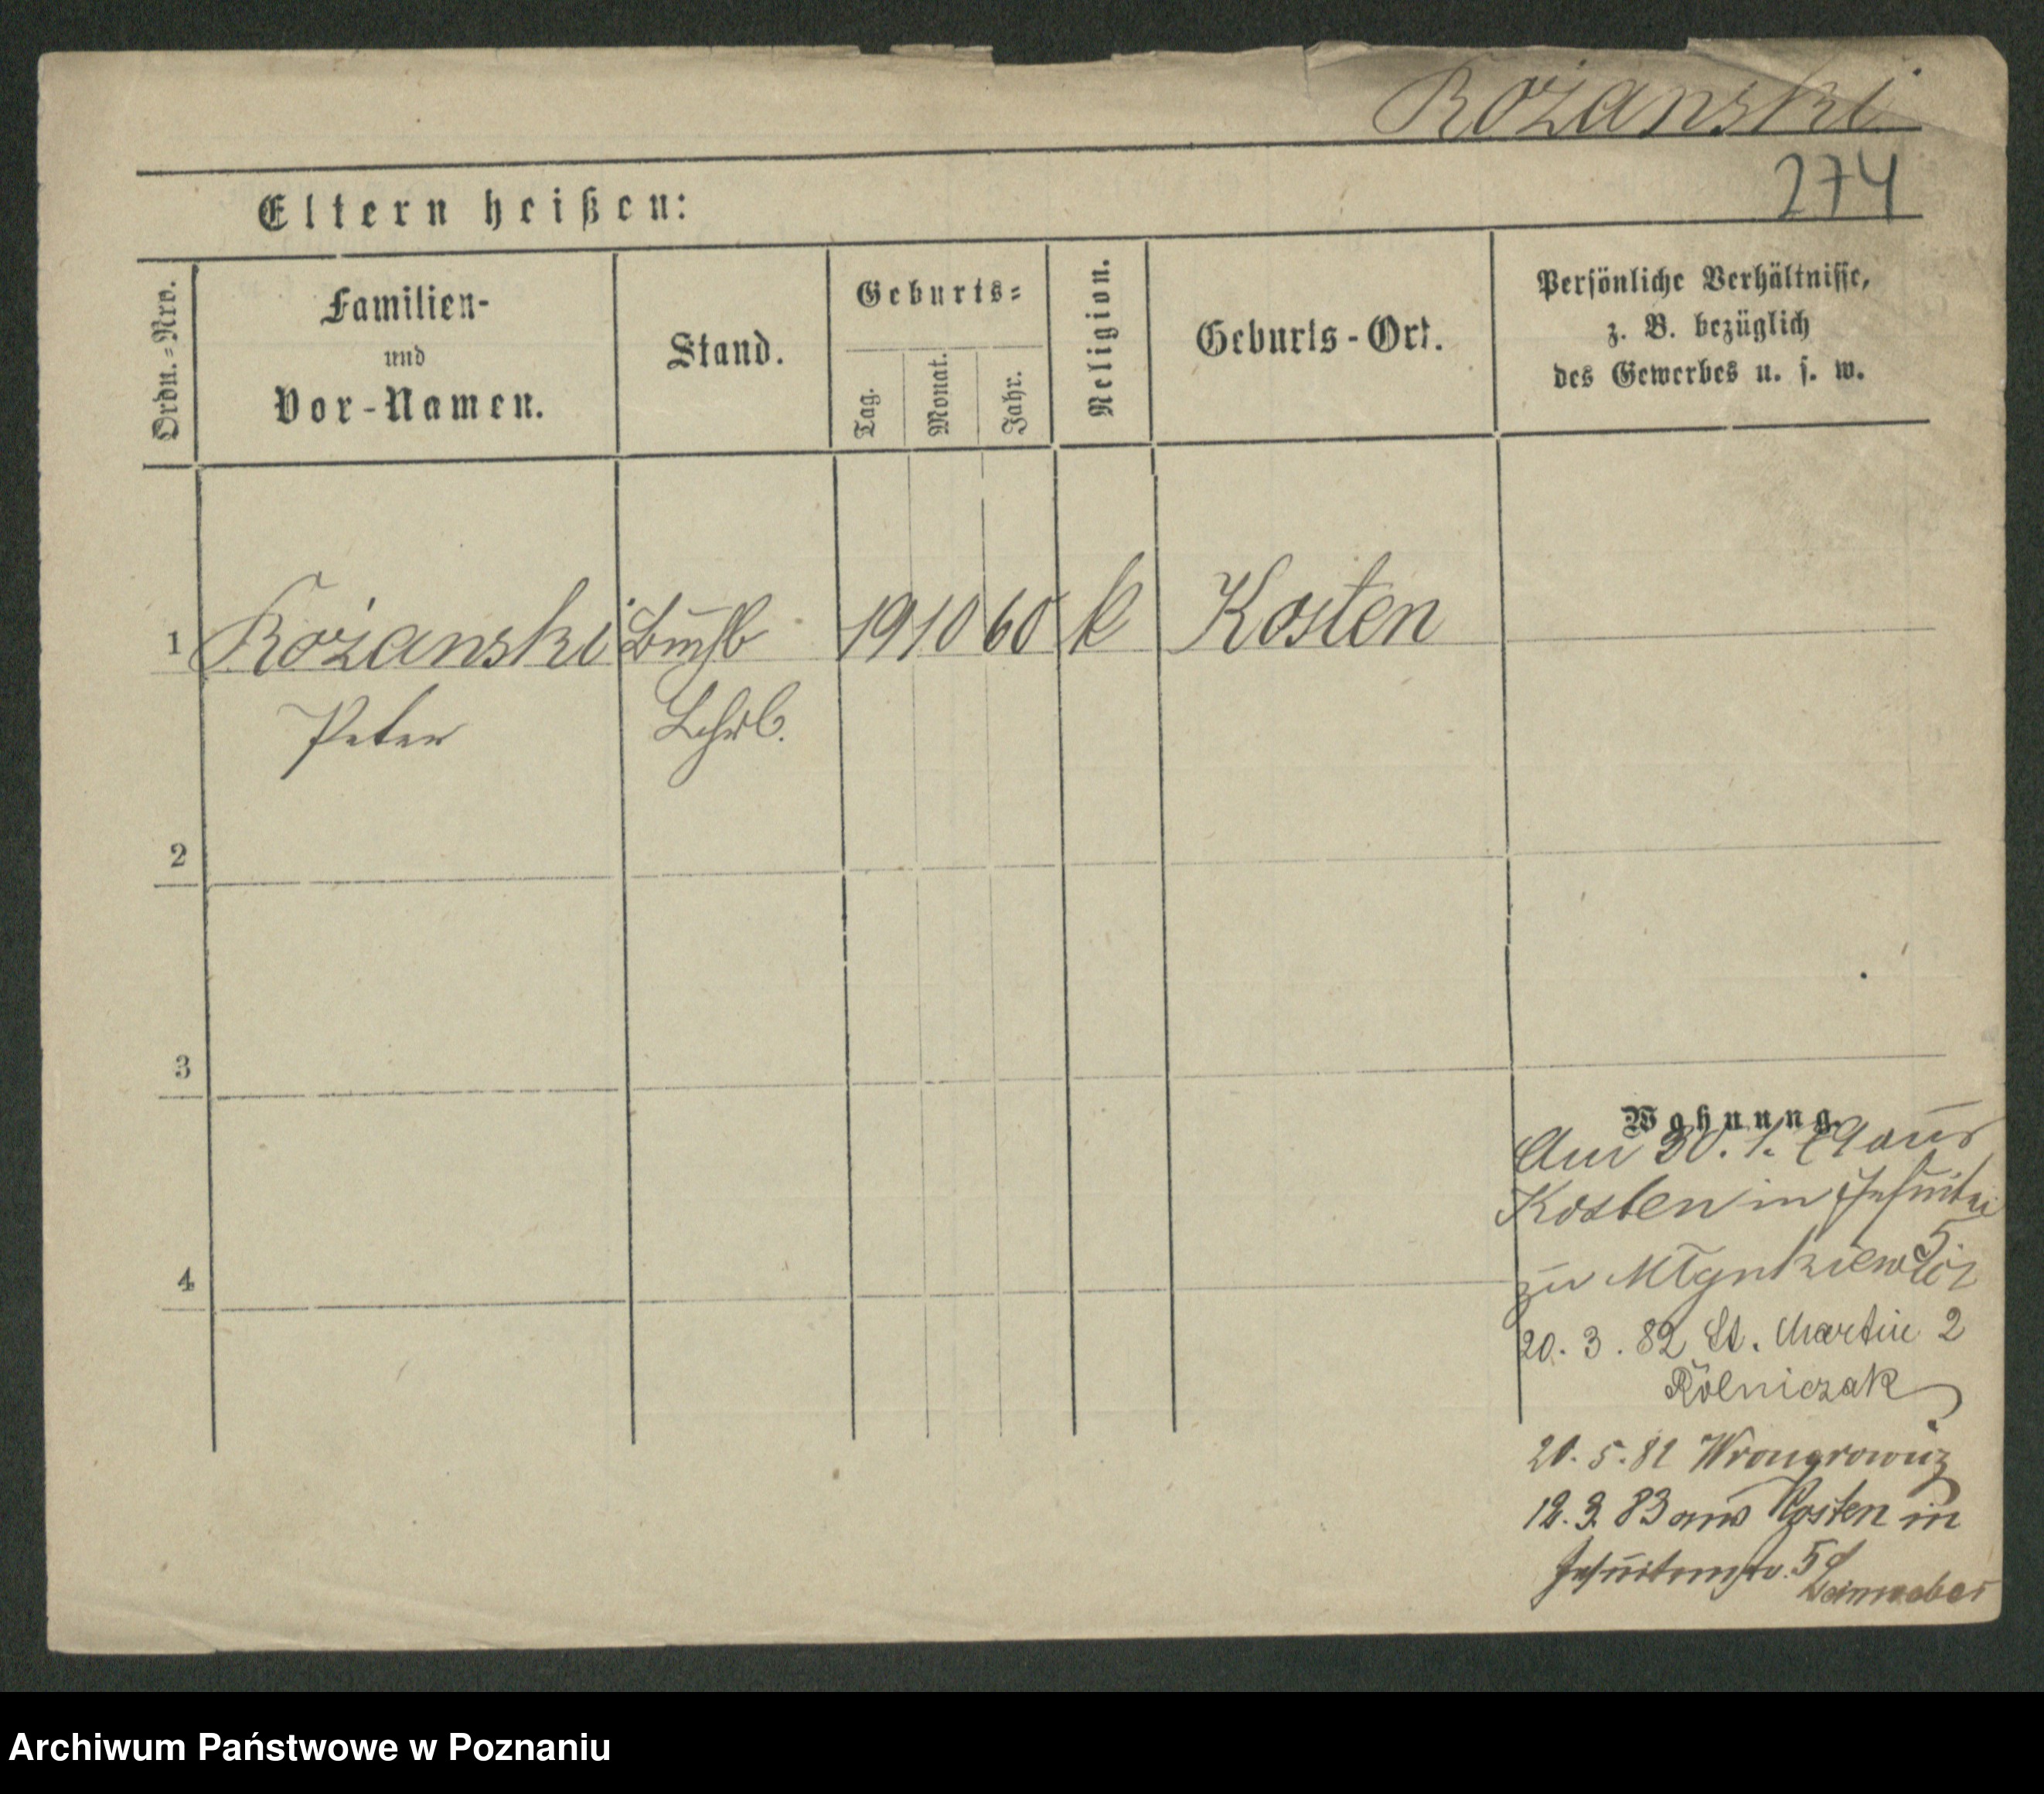 Rożanski
274
Eltern heißen:
Ordn.=Nro.
Familien-
und
Vor-Namen.
Stand.
Geburts=
Tag.
Monat.
Jahr.
Religion.
Geburts-Ort.
Persönliche Verhältnisse,
z. B. bezüglich
des Gewerbes u. s. w.
1 Rożanski 19 10 60 k Kosten
Peter
2
3
4
Wohnung.
Am 30. 1. 79 aus
Kosten in Jesuiten
5.
zu
20. 3. 82 St. Martin 2
Rölniczak
20. 5. 82
12. 3. 83 aus Kosten in
Jesuitenstr. 5
Archiwum Państwowe w Poznaniu